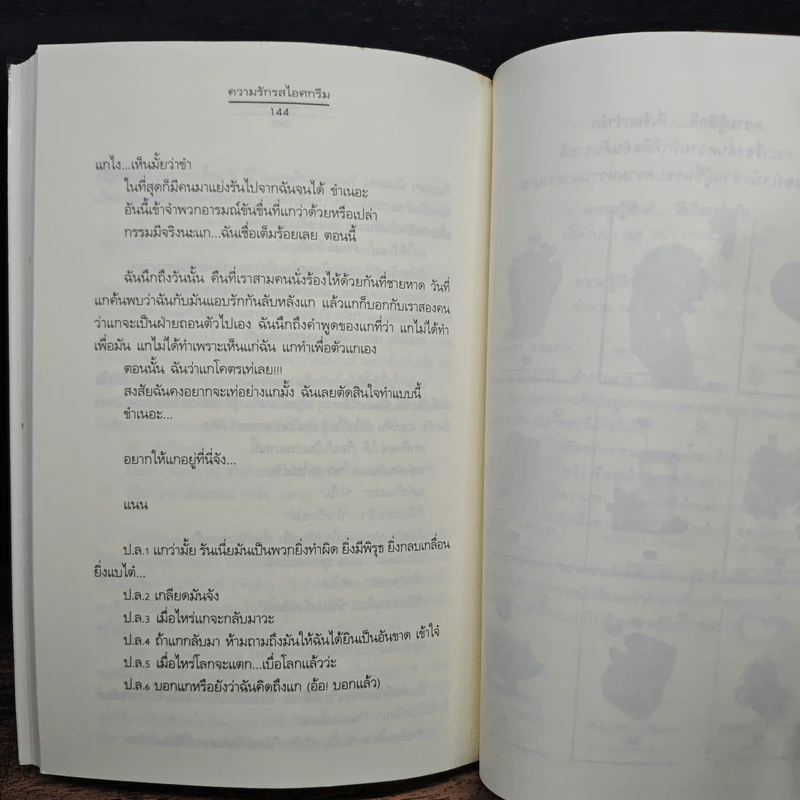 ความรักรสไอศกรีม
144
แกไง...เห็นมั้ยว่าขำ
ในที่สุดก็มีคนมาแย่งรันไปจากฉันจนได้ ขำเนอะ
อันนี้เข้าจำพวกอารมณ์ขันขื่นที่แกว่าด้วยหรือเปล่า
กรรมมีจริงนะแก...ฉันเชื่อเต็มร้อยเลย ตอนนี้
ฉันนึกถึงวันนั้น คืนที่เราสามคนนั่งร้องไห้ด้วยกันที่ชายหาด วันที่
แกค้นพบว่าฉันกับมันแอบรักกันลับหลังแก แล้วแกก็บอกกับเราสองคน
ว่าแกจะเป็นฝ่ายถอนตัวไปเอง ฉันนึกถึงคำพูดของแกที่ว่า แกไม่ได้ทำ
เพื่อมัน แกไม่ได้ทำเพราะเห็นแก่ฉัน แกทำเพื่อตัวแกเอง
ตอนนั้น ฉันว่าแกโคตรเท่เลย!!!
สงสัยฉันคงอยากจะเท่อย่างแกมั้ง ฉันเลยตัดสินใจทำแบบนี้
ขำเนอะ...
อยากให้แกอยู่ที่นี่จัง...
แนน
ป.ล.1 แกว่ามั้ย รันเนี่ยมันเป็นพวกยิ่งทำผิด ยิ่งมีพิรุธ ยิ่งกลบเกลื่อน
ยิ่งแบไต๋...
ป.ล.2 เกลียดมันจัง
ป.ล.3 เมื่อไหร่แกจะกลับมาวะ
ป.ล.4 ถ้าแกกลับมา ห้ามถามถึงมันให้ฉันได้ยินเป็นอันขาด เข้าใจ๋
ป.ล.5 เมื่อไหร่โลกจะแตก...เบื่อโลกแล้วว่ะ
ป.ล.6 บอกแกหรือยังว่าฉันคิดถึงแก (อ้อ! บอกแล้ว)